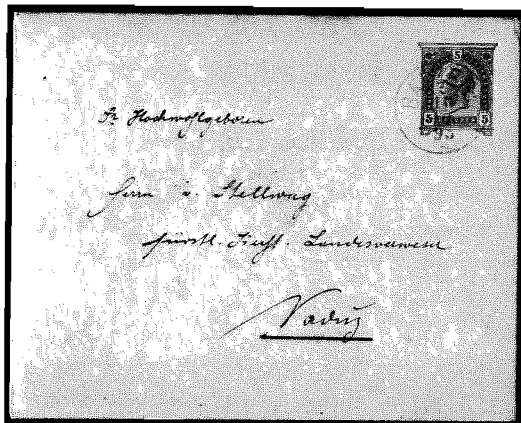 5
5 5
95
Sr. Hochwohlgeboren
Herrn v. Stellwag
fürstl. Liecht. Landesverweser
Vaduz